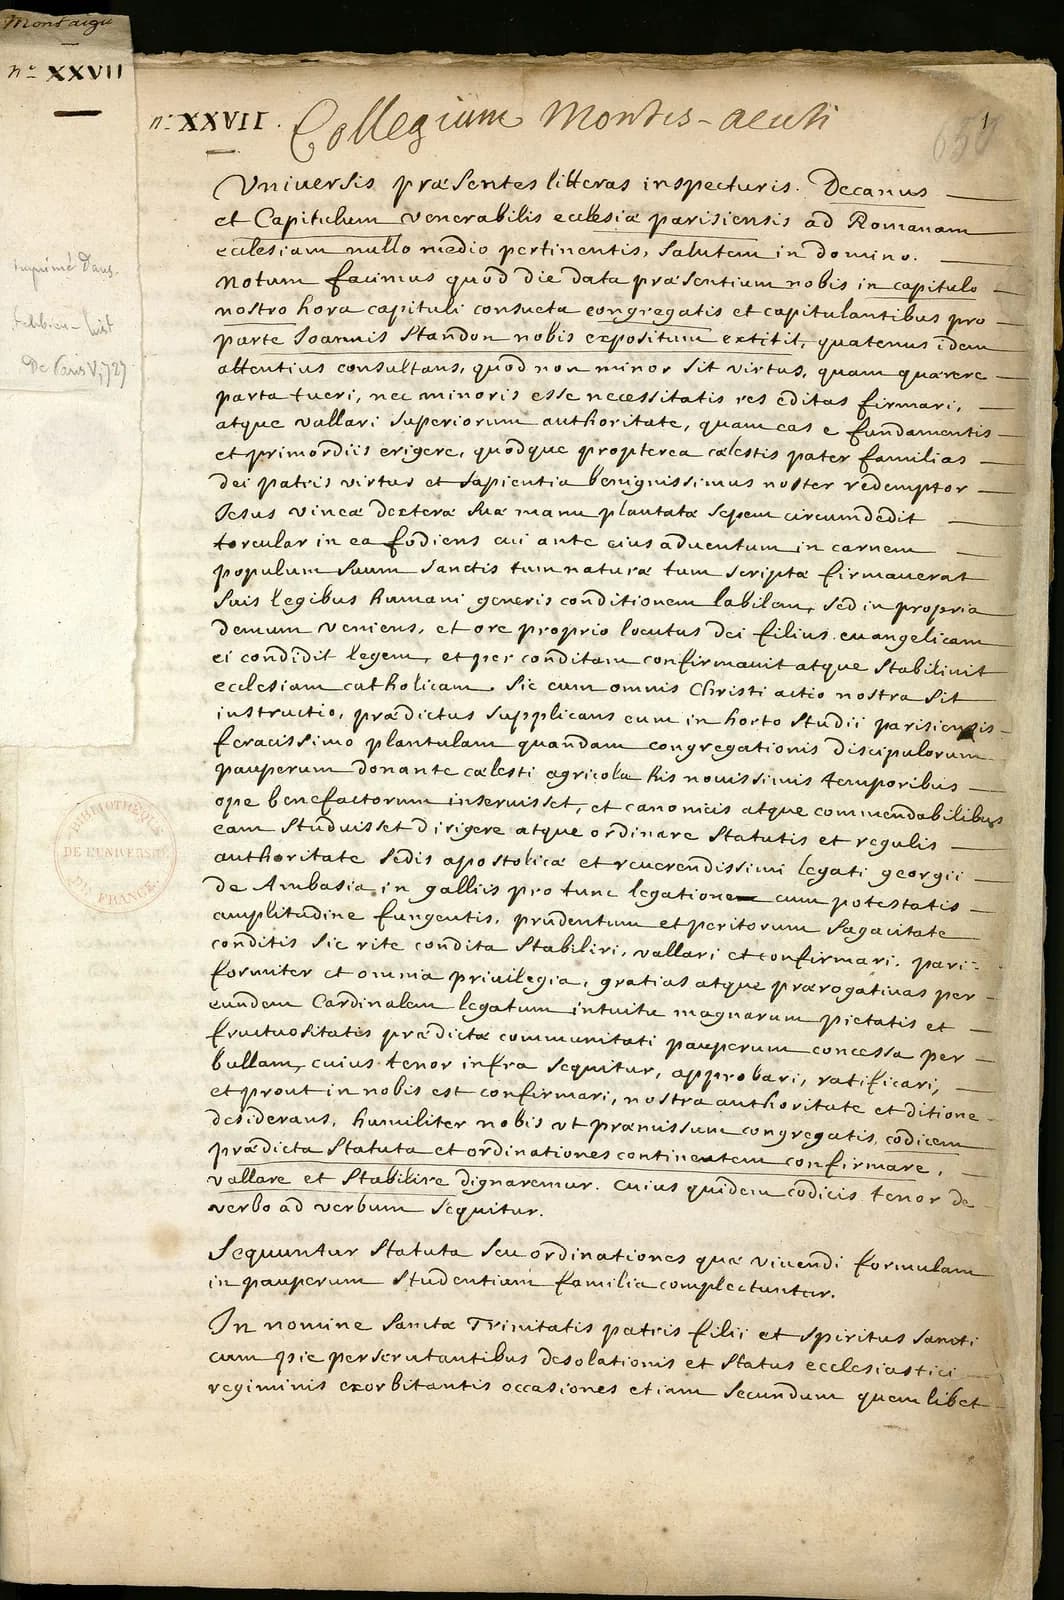 Montaigu
n.º XXVII
imprimé dans
felibien - hist
De Paris V, 727
n.º XXVII. Collegium Montis-acuti
1
650
Vniversis præsentes litteras inspecturis. Decanus
et Capitulum venerabilis ecclesiæ parisiensis ad Romanam
ecclesiam nullo medio pertinentis, salutem in domino.
Notum facimus quod die data præsentium nobis in capitulo
nostro hora capituli consueta congregatis et capitulantibus pro
parte Joannis Standon nobis expositum extitit, quatenus idem
attentius consultans, quod non minor sit virtus, quam quærere
parta tueri, nec minoris esse necessitatis res editas firmari,
atque vallari superiorum authoritate, quam eas e fundamentis
et primordiis erigere, quodque propterea cælestis pater familias
dei patris virtus et sapientia benignissimus noster redemptor
Jesus vineæ dexteræ suæ manu plantatæ sepem circumdedit
torcular in ea fodiens cui ante eius aduentum in carnem
populum suum sanctis tum naturæ tum scriptæ firmauerat
suis legibus humani generis conditionem labilem, sed in propria
demum veniens, et ore proprio locutus dei filius euangelicam
ei condidit legem, et per conditam confirmauit atque stabiliuit
ecclesiam catholicam. Sic cum omnis Christi actio nostra sit
instructio, prædictus supplicans cum in horto studii parisiensis
feracissimo plantulam quandam congregationis discipulorum
pauperum donante cælesti agricola his nouissimis temporibus
ope benefactorum inseruisset, et canonicis atque commendabilibus
eam studuisset dirigere atque ordinare statutis et regulis
authoritate sedis apostolicæ et reuerendissimi legati georgii
de Ambasia in galliis pro tunc legatione cum potestatis
amplitudine fungentis, prudentum et peritorum sagacitate
conditis sic rite condita stabiliri, vallari et confirmari. pari-
formiter et omnia priuilegia, gratias atque prærogatiuas per
eundem Cardinalem legatum intuitu magnarum pietatis et
fructuositatis prædictæ communitati pauperum concessa per
bullam, cuius tenor infra sequitur, approbari, ratificari,
et prout in nobis est confirmari, nostra authoritate et ditione
desiderans, humiliter nobis vt præmissum congregatis, codicem
prædicta statuta et ordinationes continentem confirmare,
vallare et stabilire dignaremur. cuius quidem codicis tenor de
verbo ad verbum sequitur.
Sequuntur statuta seu ordinationes quæ viuendi formulam
in pauperum studentium familia complectuntur.
In nomine sanctæ Trinitatis patris filii et spiritus sancti
cum pie perscrutantibus desolationis et status ecclesiastici
regiminis exorbitantis occasiones etiam secundum quemlibet
BIBLIOTHÈQUE
DE L'UNIVERSITÉ
DE FRANCE